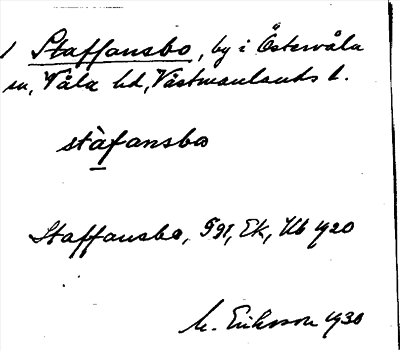 1 Staffansbo, by i Östervåla
sn, Våla hd, Västmanlands l.
stàfansbo
Staffansbo, Ek, Ub 1920
M. Eriksson 1930